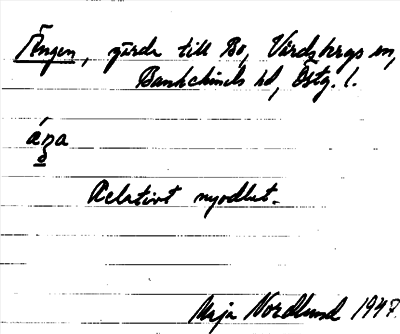 Ängen, gärde till Bo, Vårdsbergs sn,
Bankekinds hd, Östg. l.
áŋa
Relativt nyodlat.
Maja Nordlund 1947.